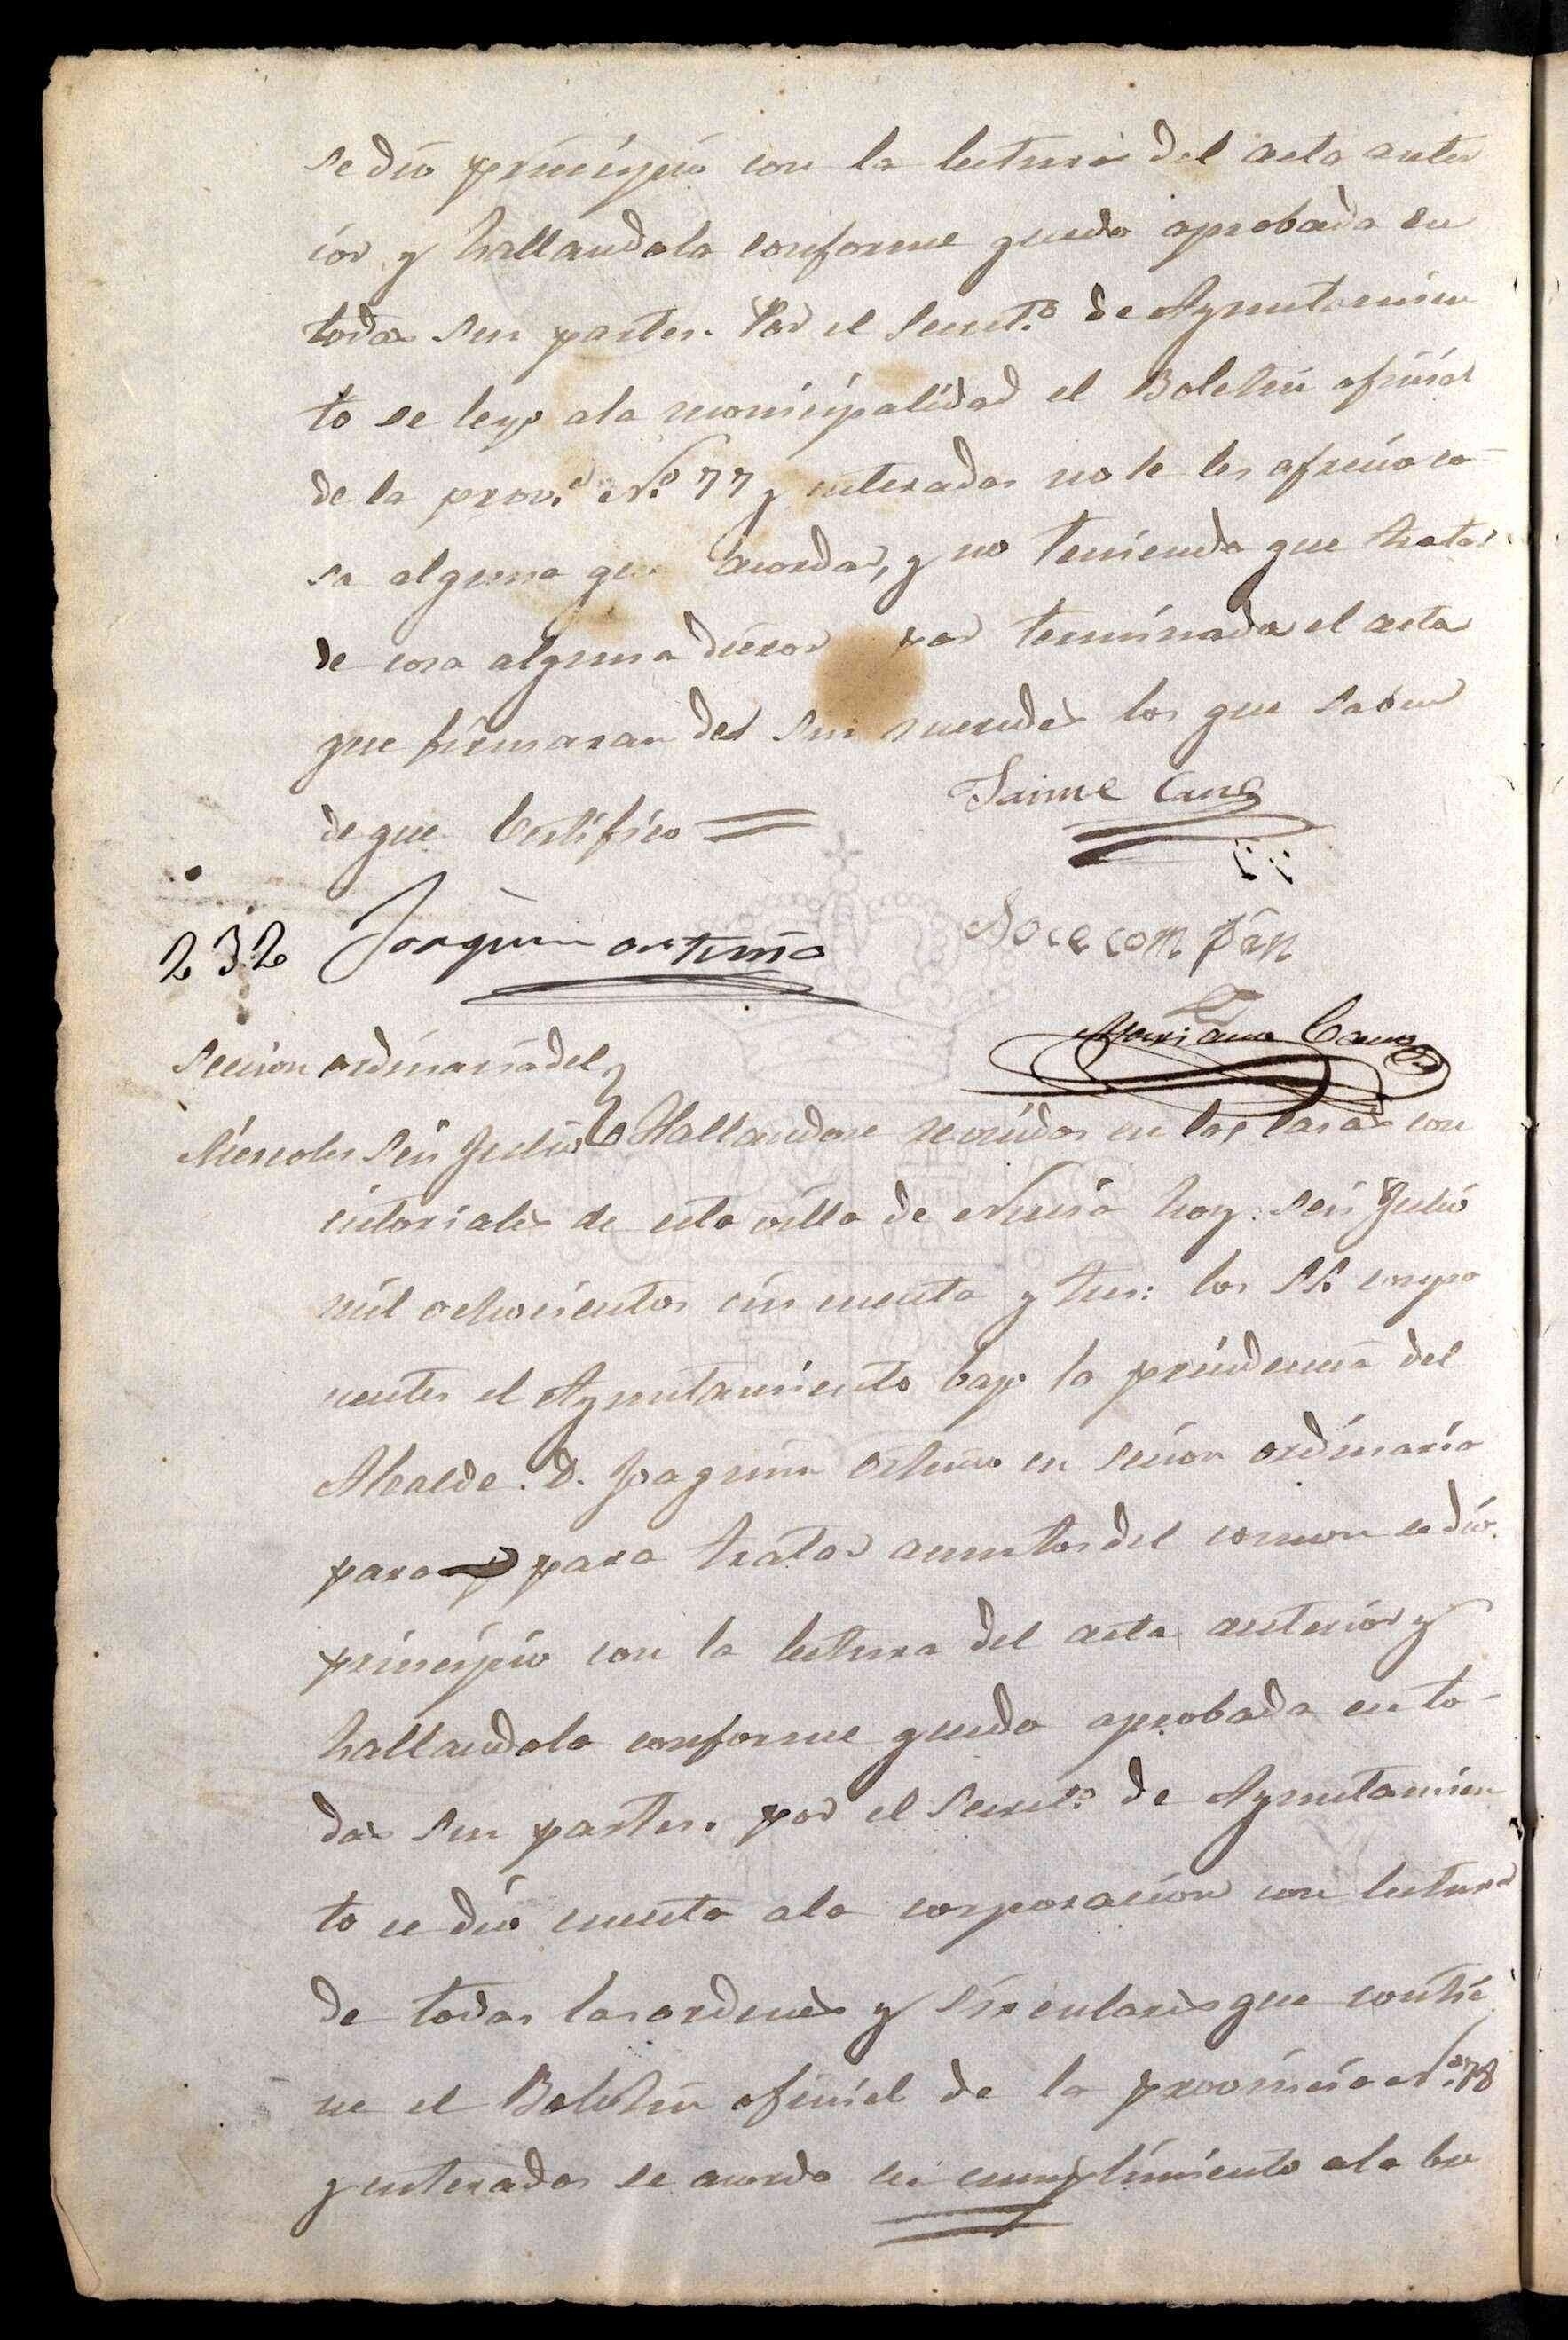 se dio principio con la lectura del acta anter
ior y hallandola conforme queda aprobada en
todas sus partes. Por el Secret.º de Ayuntamien
to se leyo ala monicipalidad el Boletin oficial
de la prov.ª Nº 77 y enterados no se les afrecio co
sa alguna que acordar, y no teniendo que tratar
de cosa alguna dieron por terminada el acta
que firmaran de sus mercedes los que saben
de que Certifico =
Jaime Cano
232
Joaquin ortuño
Mariano Cano
Secion ordinaria del
Miercoles seis Julio
Hallandose reonidos en las casas con
cistoriales de esta villa de Nucia hoy seis Julio
mil ochocientos cincuenta y tres: los SS. compo
nentes el Ayuntamiento bajo la presidencia del
Alcalde. D. Joaquin Ortuño en secion ordinaria
para para tratar asuntos del comun se dio
principio con la lectura del acta anterior y
hallandola conforme queda aprobada en to-
das sus partes. por el Secret.º de Ayuntamien
to se dio cuenta ala corporacion con lectura
de todas las ordenes y sirculares que contie
ne el Boletin oficial de la provincia Nº 78
y enterados se acordo su cumplimiento ala bre